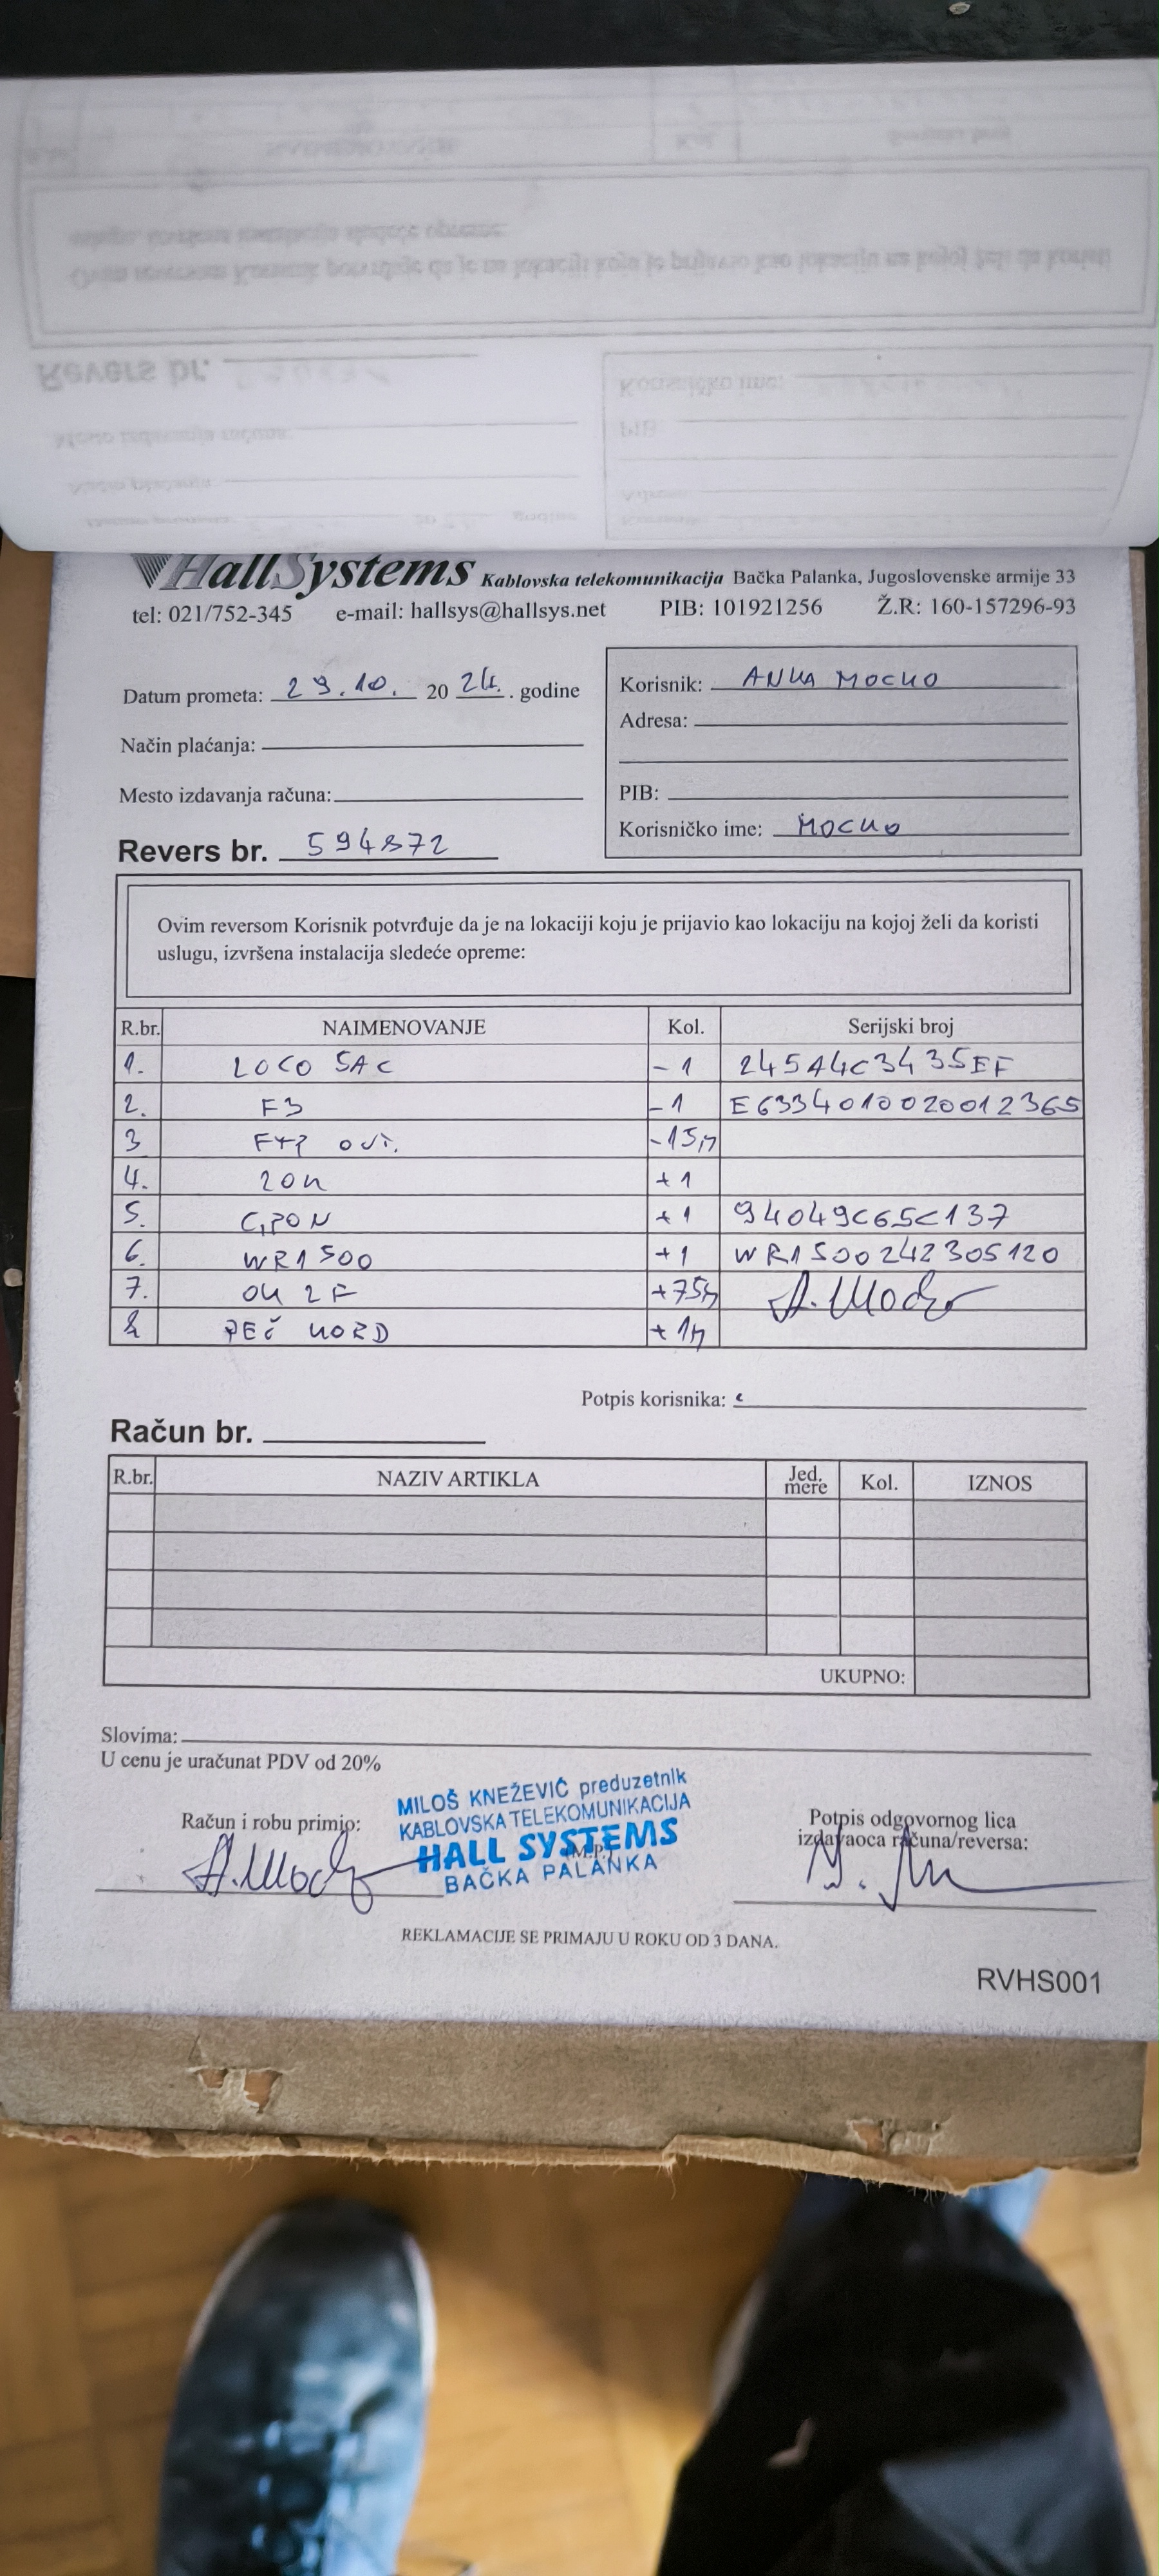 HallSystems Kablovska telekomunikacija Bačka Palanka, Jugoslovenske armije 33
tel: 021/752-345 e-mail: hallsys@hallsys.net PIB: 101921256 Ž.R: 160-157296-93
Datum prometa: 29.10. 20 24. . godine
Način plaćanja:
Mesto izdavanja računa:
Revers br. 594872
Korisnik: ANKA MOCKO
Adresa:
PIB:
Korisničko ime: MOCKO
Ovim reversom Korisnik potvrđuje da je na lokaciji koju je prijavio kao lokaciju na kojoj želi da koristi
uslugu, izvršena instalacija sledeće opreme:
R.br. NAIMENOVANJE Kol. Serijski broj
1. LOCO 5AC -1 245A4C3435EF
2. F3 -1 E6334010020012365
3 FTP OUT. -15m
4. 20N +1
5. GPON +1 94049C65C137
6. WR1500 +1 WR1500242305120
7. OK 2F +75m A. Mocko
8 PEČ KORD +1m
Potpis korisnika:
Račun br.
R.br. NAZIV ARTIKLA Jed. mere Kol. IZNOS
UKUPNO:
Slovima:
U cenu je uračunat PDV od 20%
Račun i robu primio:
A. Mocko
MILOŠ KNEŽEVIĆ preduzetnik
KABLOVSKA TELEKOMUNIKACIJA
HALL SYSTEMS
BAČKA PALANKA
M.P.
Potpis odgovornog lica
izdavaoca računa/reversa:
REKLAMACIJE SE PRIMAJU U ROKU OD 3 DANA.
RVHS001